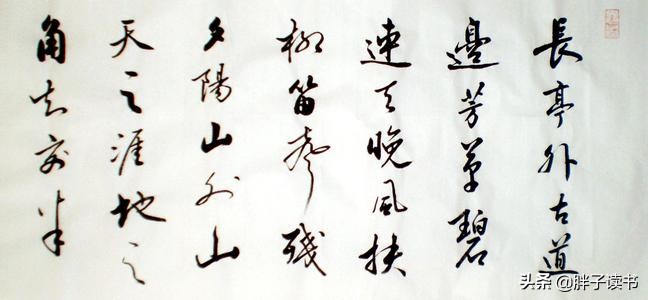 長亭外古道
邊芳草碧
連天晚風扶
柳笛聲殘
夕陽山外山
天之涯地之
角知交半
头条 @胖子读书